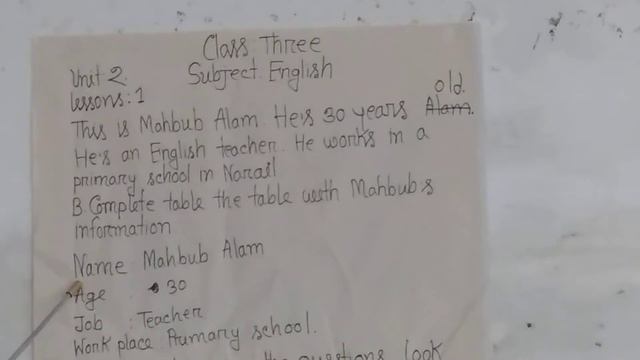 Class: Three
Unit 2.
Subject: English
lessons: 1
This is Mahbub Alam. He's 30 years Alam. old.
He's an English teacher. He works in a
primary school in Narail
B. Complete table the table with Mahbub's
information
Name Mahbub Alam
Age : 30
Job : Teacher
Work place Primary school.
the questions look